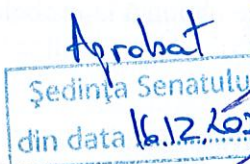 Aprobat
Ședința Senatulu
din data 16.12.202